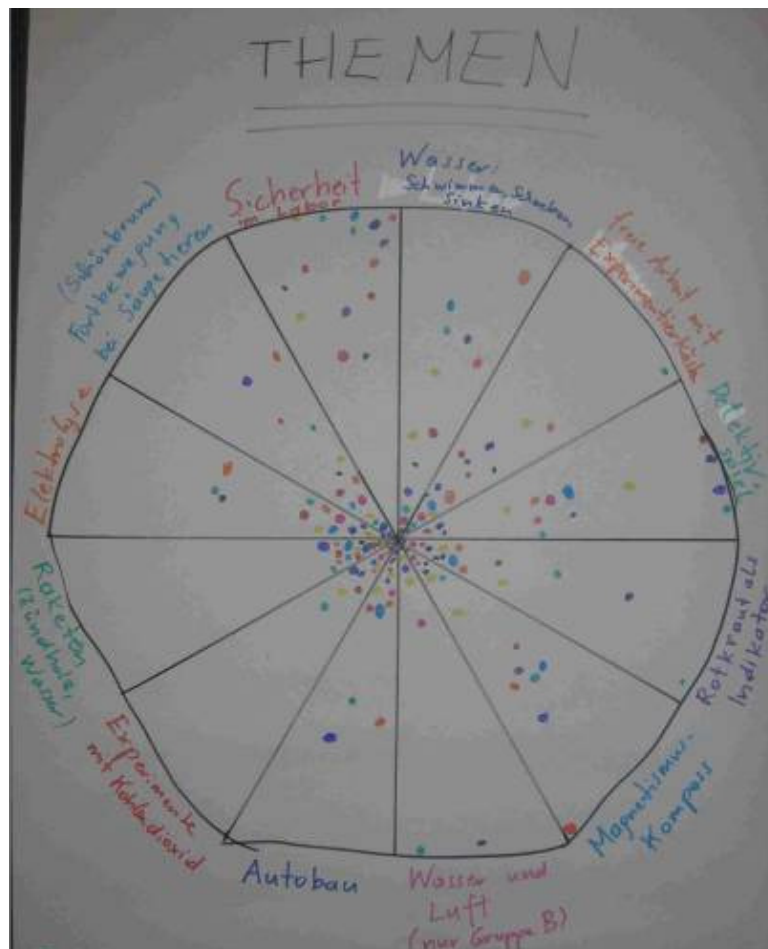 THEMEN
Wasser:
Schwimmen, Schweben,
Sinken
freie Arbeit mit
Detektiv
Rotkraut als
Indikator
Magnetismus-
Kompass
Wasser und
Luft
(nur Gruppe B)
Autobau
Experimente
mit Kohlendioxid
Raketen
(Zündholz,
Wasser)
Elektrolyse
(Schönbrunn)
Fortbewegung
bei Säugetieren
Sicherheit
im Labor